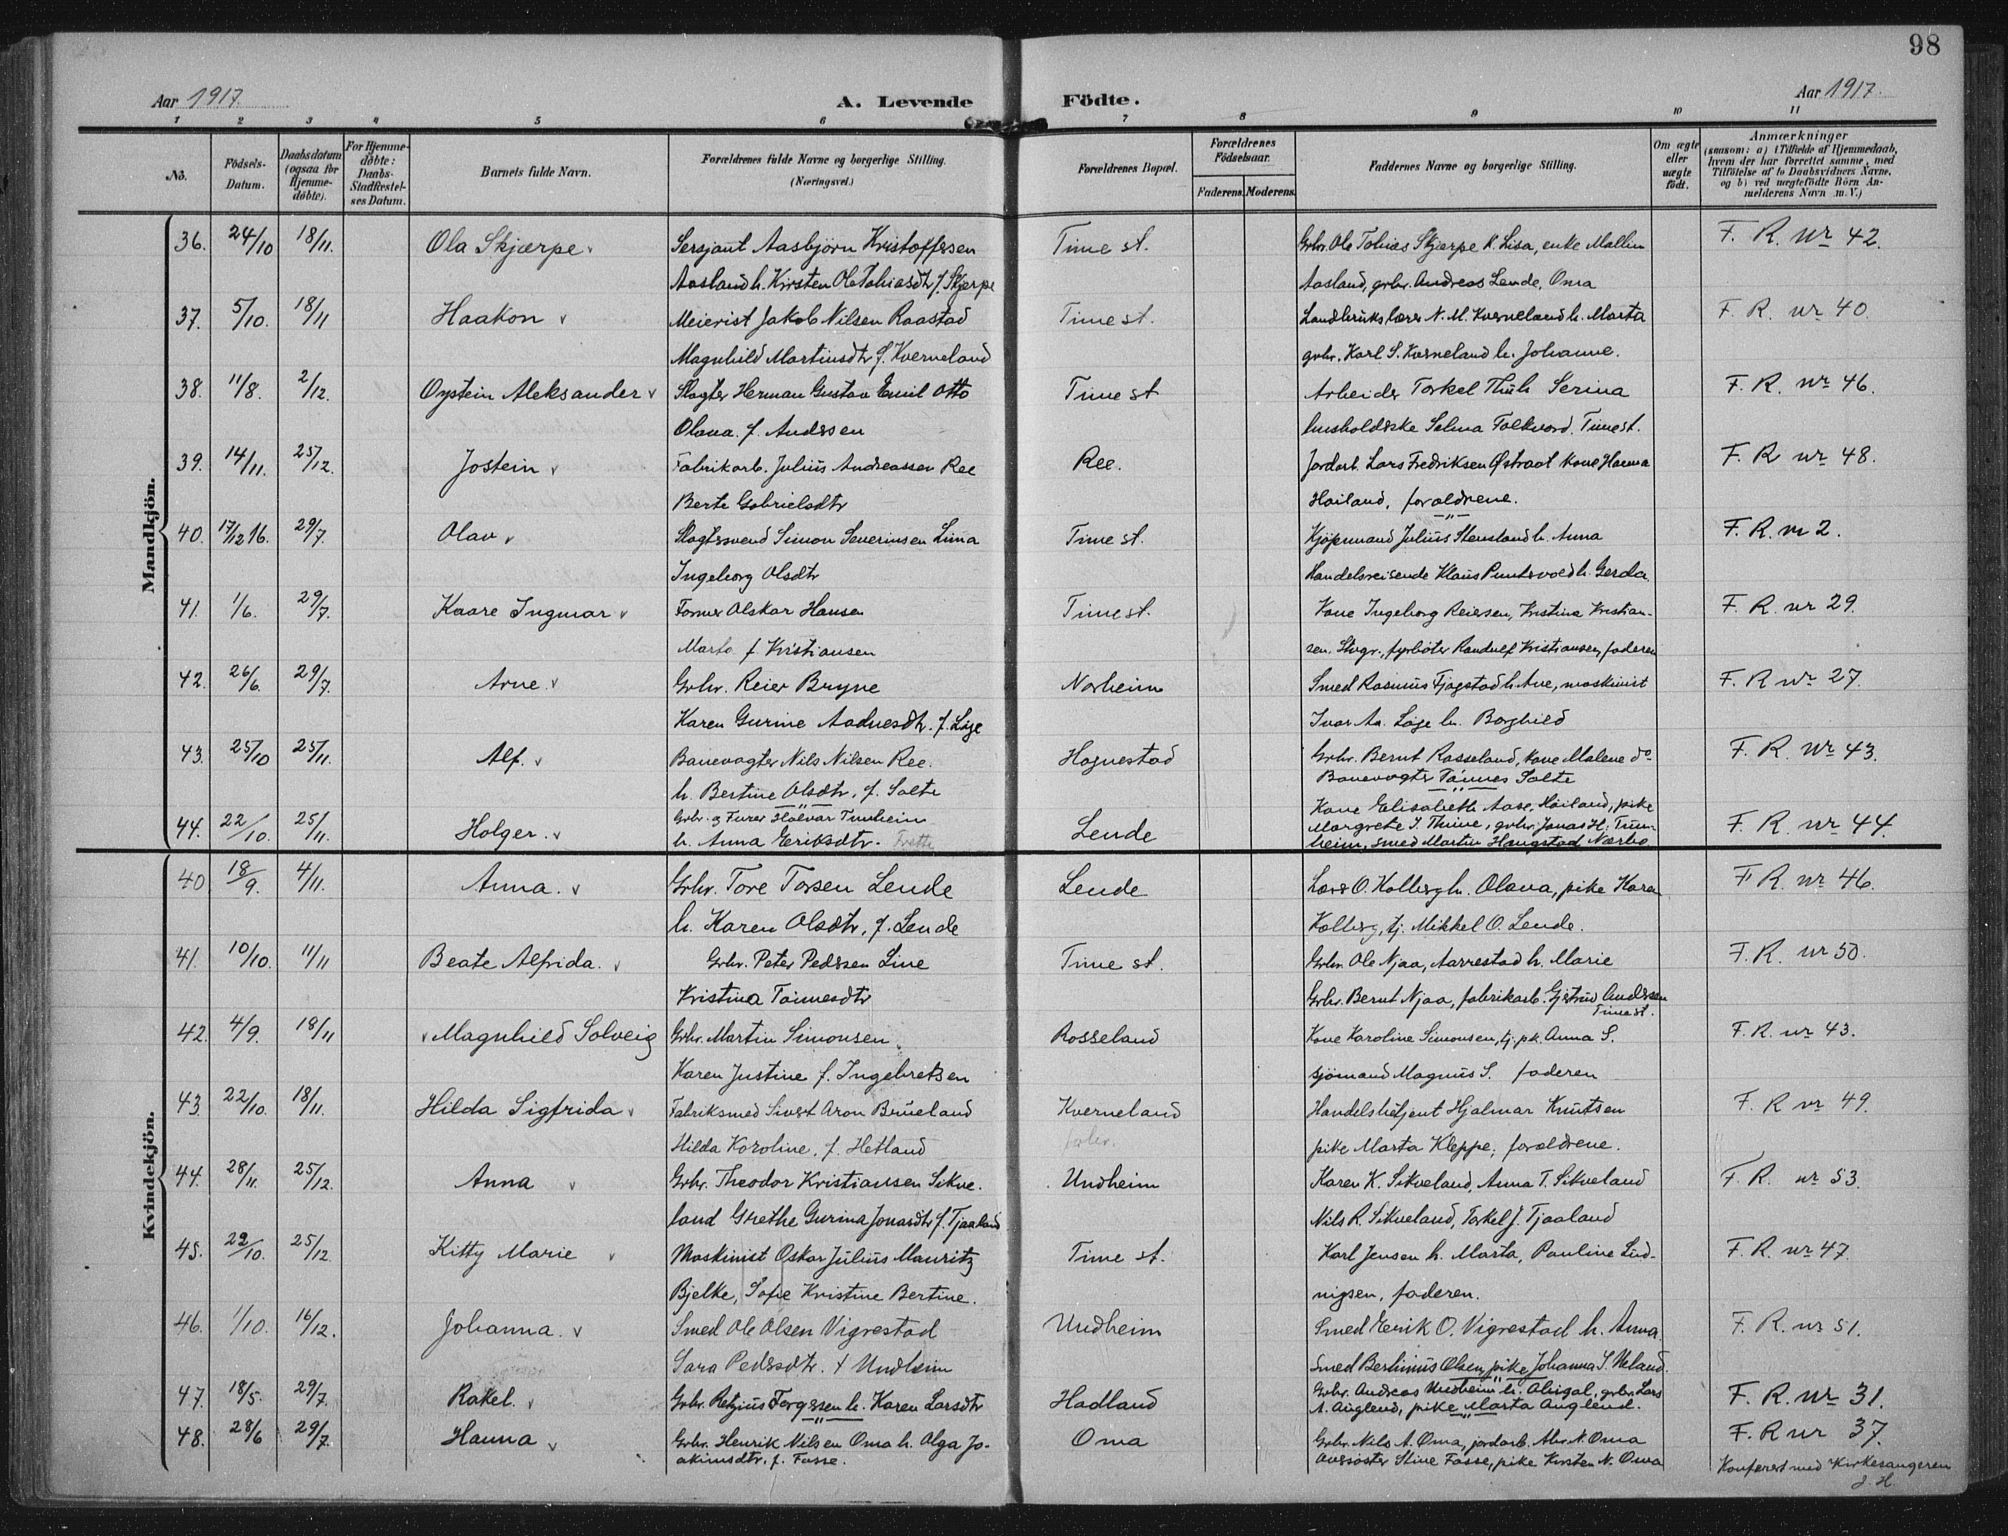 98
Aar 1917. A. Levende Födte. Aar 1917.
1 2 3 4 5 6 7 8 9 10 11
No. Födsels-Datum. Daabsdatum (ogsaa for Hjemme-döbte). For Hjemme-döbte: Daabs-Stadfæstel-ses Datum. Barnets fulde Navn. Forældrenes fulde Navne og borgerlige Stilling. (Næringsvei.) Forældrenes Bopæl. Forældrenes Födselsaar. Faderens. Moderens. Faddernes Navne og borgerlige Stilling. Om ægte eller uægte födt. Anmærkninger (saasom: a) i Tilfælde af Hjemmedaab, hvem der har forrettet samme, med Tilföielse af to Daabsvidners Navne, og b) ved uægtefödte Börn An-melderens Navn m. V.)
Mandkjön.
36. 24/10 18/11. Ola Skjærpe Sersjant Aasbjörn Kristoffersen Time st. Grbr. Ole Tobias Skjærpe k. Lisa, enke Mallin F. R. nr 42.
Aasland h. Kirsten Ole Tobiasdtr f. Skjerpe Aasland, grbr. Andreas Lende, Oma
37. 5/10. 18/11 Haakon Meierist Jakob Nilsen Raastad Time st. Landbrukslærer N. M. Kverneland h. Marta F. R. nr 40.
Magnhild Martinsdtr f. Kverneland grbr. Karl S. Kverneland h. Johanne.
38. 11/8. 2/12. Öystein Aleksander Slagter Herman Gustav Emil Otto Time st Arbeider Torkel Thu h. Serina F. R. nr 46.
Olava. f. Anderssen husholderske Selma Folkvord. Time st.
39. 14/11. 25/12. Jostein Fabrikarb. Julius Andreassen Ree Ree. Jordarb. Lars Fredriksen Østraat kone Hanna F. R nr 48.
Berte Gabrielsdtr Hailand, forældrene.
40. 17/12 16. 29/7. Olav Slagtersvend Simon Severinsen Lima Time st. Kjöpmand Julius Stensland h. Anna F. R. nr 2.
Ingeborg Olsdtr Handelsreisende Klaus Puntsvoed h. Gerda
41. 1/6. 29/7. Kaare Ingmar Former Olskar Hansen Time st. Kone Ingeborg Reiersen, Kristina Kristian- F. R. nr 29.
Marta f. Kristiansen sen. Stvgr., fyrböter Randulf Kristiansen, faderen
42. 26/6. 29/7. Arne Grbr. Reier Bryne Norheim Smed Rasmus Fjogstad h. Ane, maskinist F. R nr 27.
Karen Gurine Aadnesdtr. f. Löge Ivar Aa. Löge h. Borghild
43. 25/10 25/11. Alf. Banevogter Nils Nilsen Ree. Hognestad Grbr. Bernt Rosseland, kone Malene do F. R. nr 43.
h. Bertine Olsdtr, f. Salte Banevogter Tönnes Salte
44. 22/10. 25/11. Holger. Grbr. og Furer Halvar Tunheim Lende Kone Elisabeth Aase, Hailand, pike F. R nr 44.
h. Anna Eriksdtr. Margrete J. Thime, grbr. Jonas H. Tun-
heim, smed Martin Haugstad Nærbö
Kvindekjön.
40 18/9. 4/11. Anna. Grbr. Tore Torsen Lende Lende Lars O. Kolberg h. Olava, pike Karen F R. nr 46.
h. Karen Olsdtr, f. Lende Kolberg, tj. Mikkel O. Lende.
41. 10/10. 11/11 Beate Alfrida. Grbr. Peter Pederssen Line Time st. Grbr. Ole Njaa, Aarrestad h. Marie F. R. nr 50.
Kristina Tönnesdtr Grbr. Bernt Njaa, fabrikarb. Gjertrud Anderssen
Time st.
42. 4/9. 18/11 Magnhild Solveig Grbr. Martin Simonsen Rosseland Kone Karoline Simonsen, tj. pk. Anna S. F. R. nr 43.
Karen Justine f. Ingebretsen sjömand Magnus S. faderen
43. 22/10. 18/11. Hilda Sigfrida Fabriksmed Sivert Aron Brueland Kverneland Handelsbetjent Hjalmar Knutsen F. R nr 49.
Hilda Karoline, f. Hetland pike Marta Kleppe, forældrene.
44. 28/11. 25/12. Anna Grbr. Theodor Kristiansen Sikve- Undheim Karen K. Sikveland, Anna T. Sikveland F. R. nr 53.
land Grethe Gurina Jonasdtr f. Tjaaland Nils R. Sikveland, Torkel J. Tjaaland
45. 22/10. 25/12. Kitty Marie Maskinist Oskar Julius Mauritz Time st. Karl Jensen h. Marta, Pauline Lud- F. R. nr 47.
Bjelke, Sofie Kristine Bertine. vigsen, faderen.
46. 1/10. 16/12. Johanna. Smed Ole Olsen Vigrestad Undheim Smed Eerik O. Vigrestad h. Anna F. R. nr 51.
Sara Pedersdtr. f Undheim Smed Berthinius Olsen, pike Johanna S. Veland.
47. 18/5. 29/7. Rakel. Grbr. Retzius Torgersen h. Karen Larsdtr Hadland Grbr. Andreas Undheim h. Abigal, grbr. Lars F. R. nr 31.
A. Auglend, pike Marta Auglend.
48. 28/6 29/7. Hanna Grbr. Henrik Nilsen Oma h. Olga Jo- Oma Grbr. Nils A. Oma, jordarb. Abr. N. Oma F. R nr 37.
akimsdtr. f. Fosse. Stine Fosse, pike Kirsten N. Oma
Konferert med Kirkesangeren
J. H.